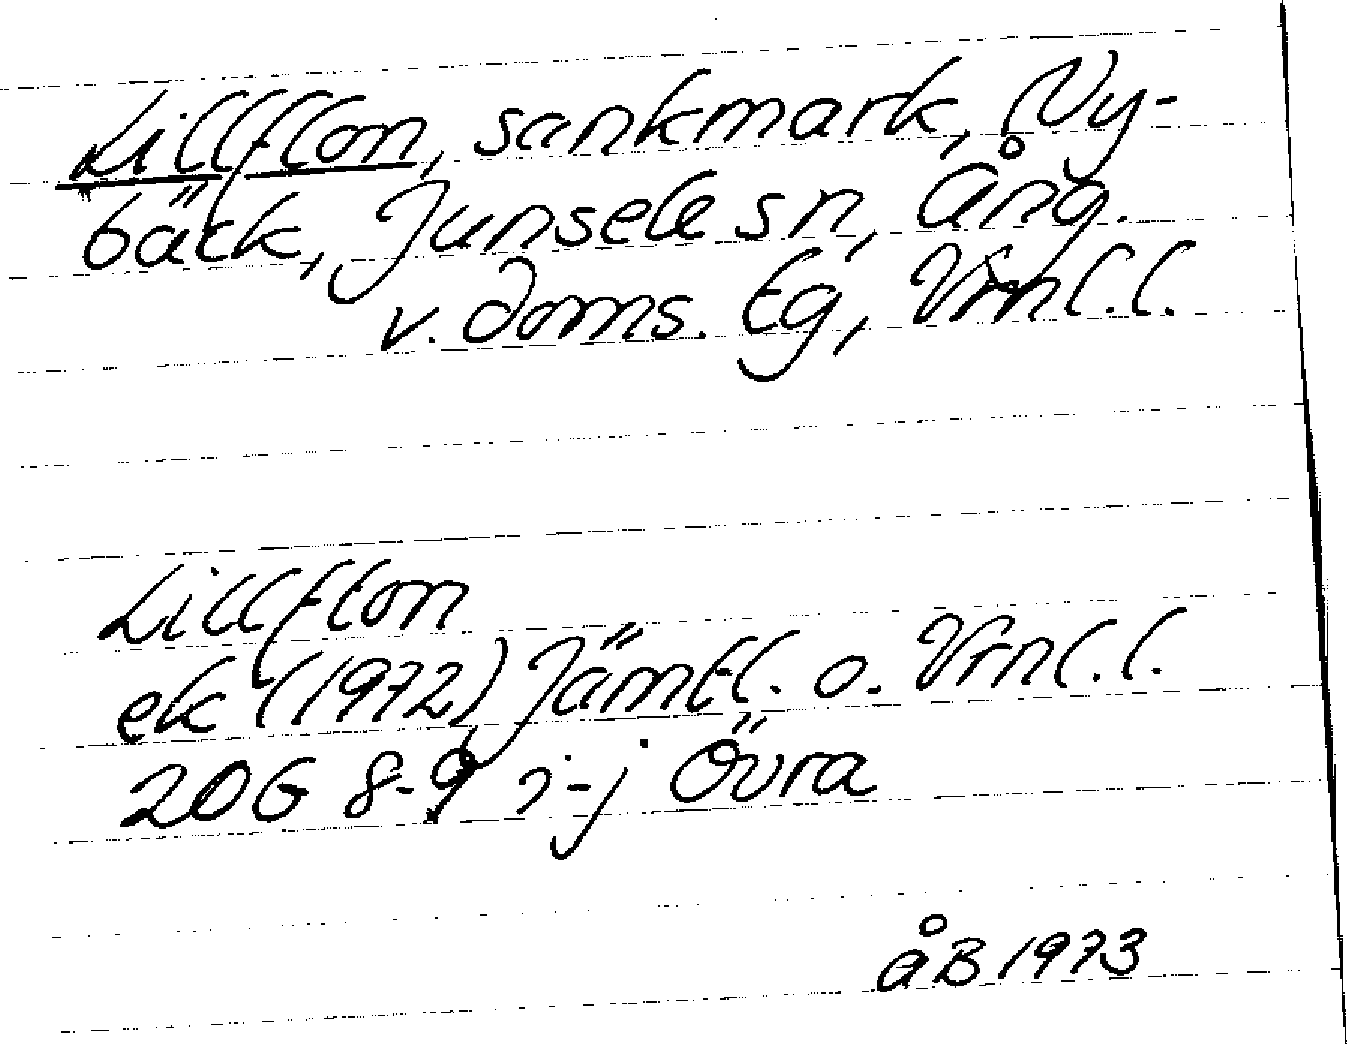 Lillflon, sankmark, Ny-
bäck, Junsele sn, Ång.
v. doms. Eg, Vrnl. l.
Lillflon
ek (1972) Jämtl. o. Vrnl. l.
20G 8-9 i-j Övra
åB 1973